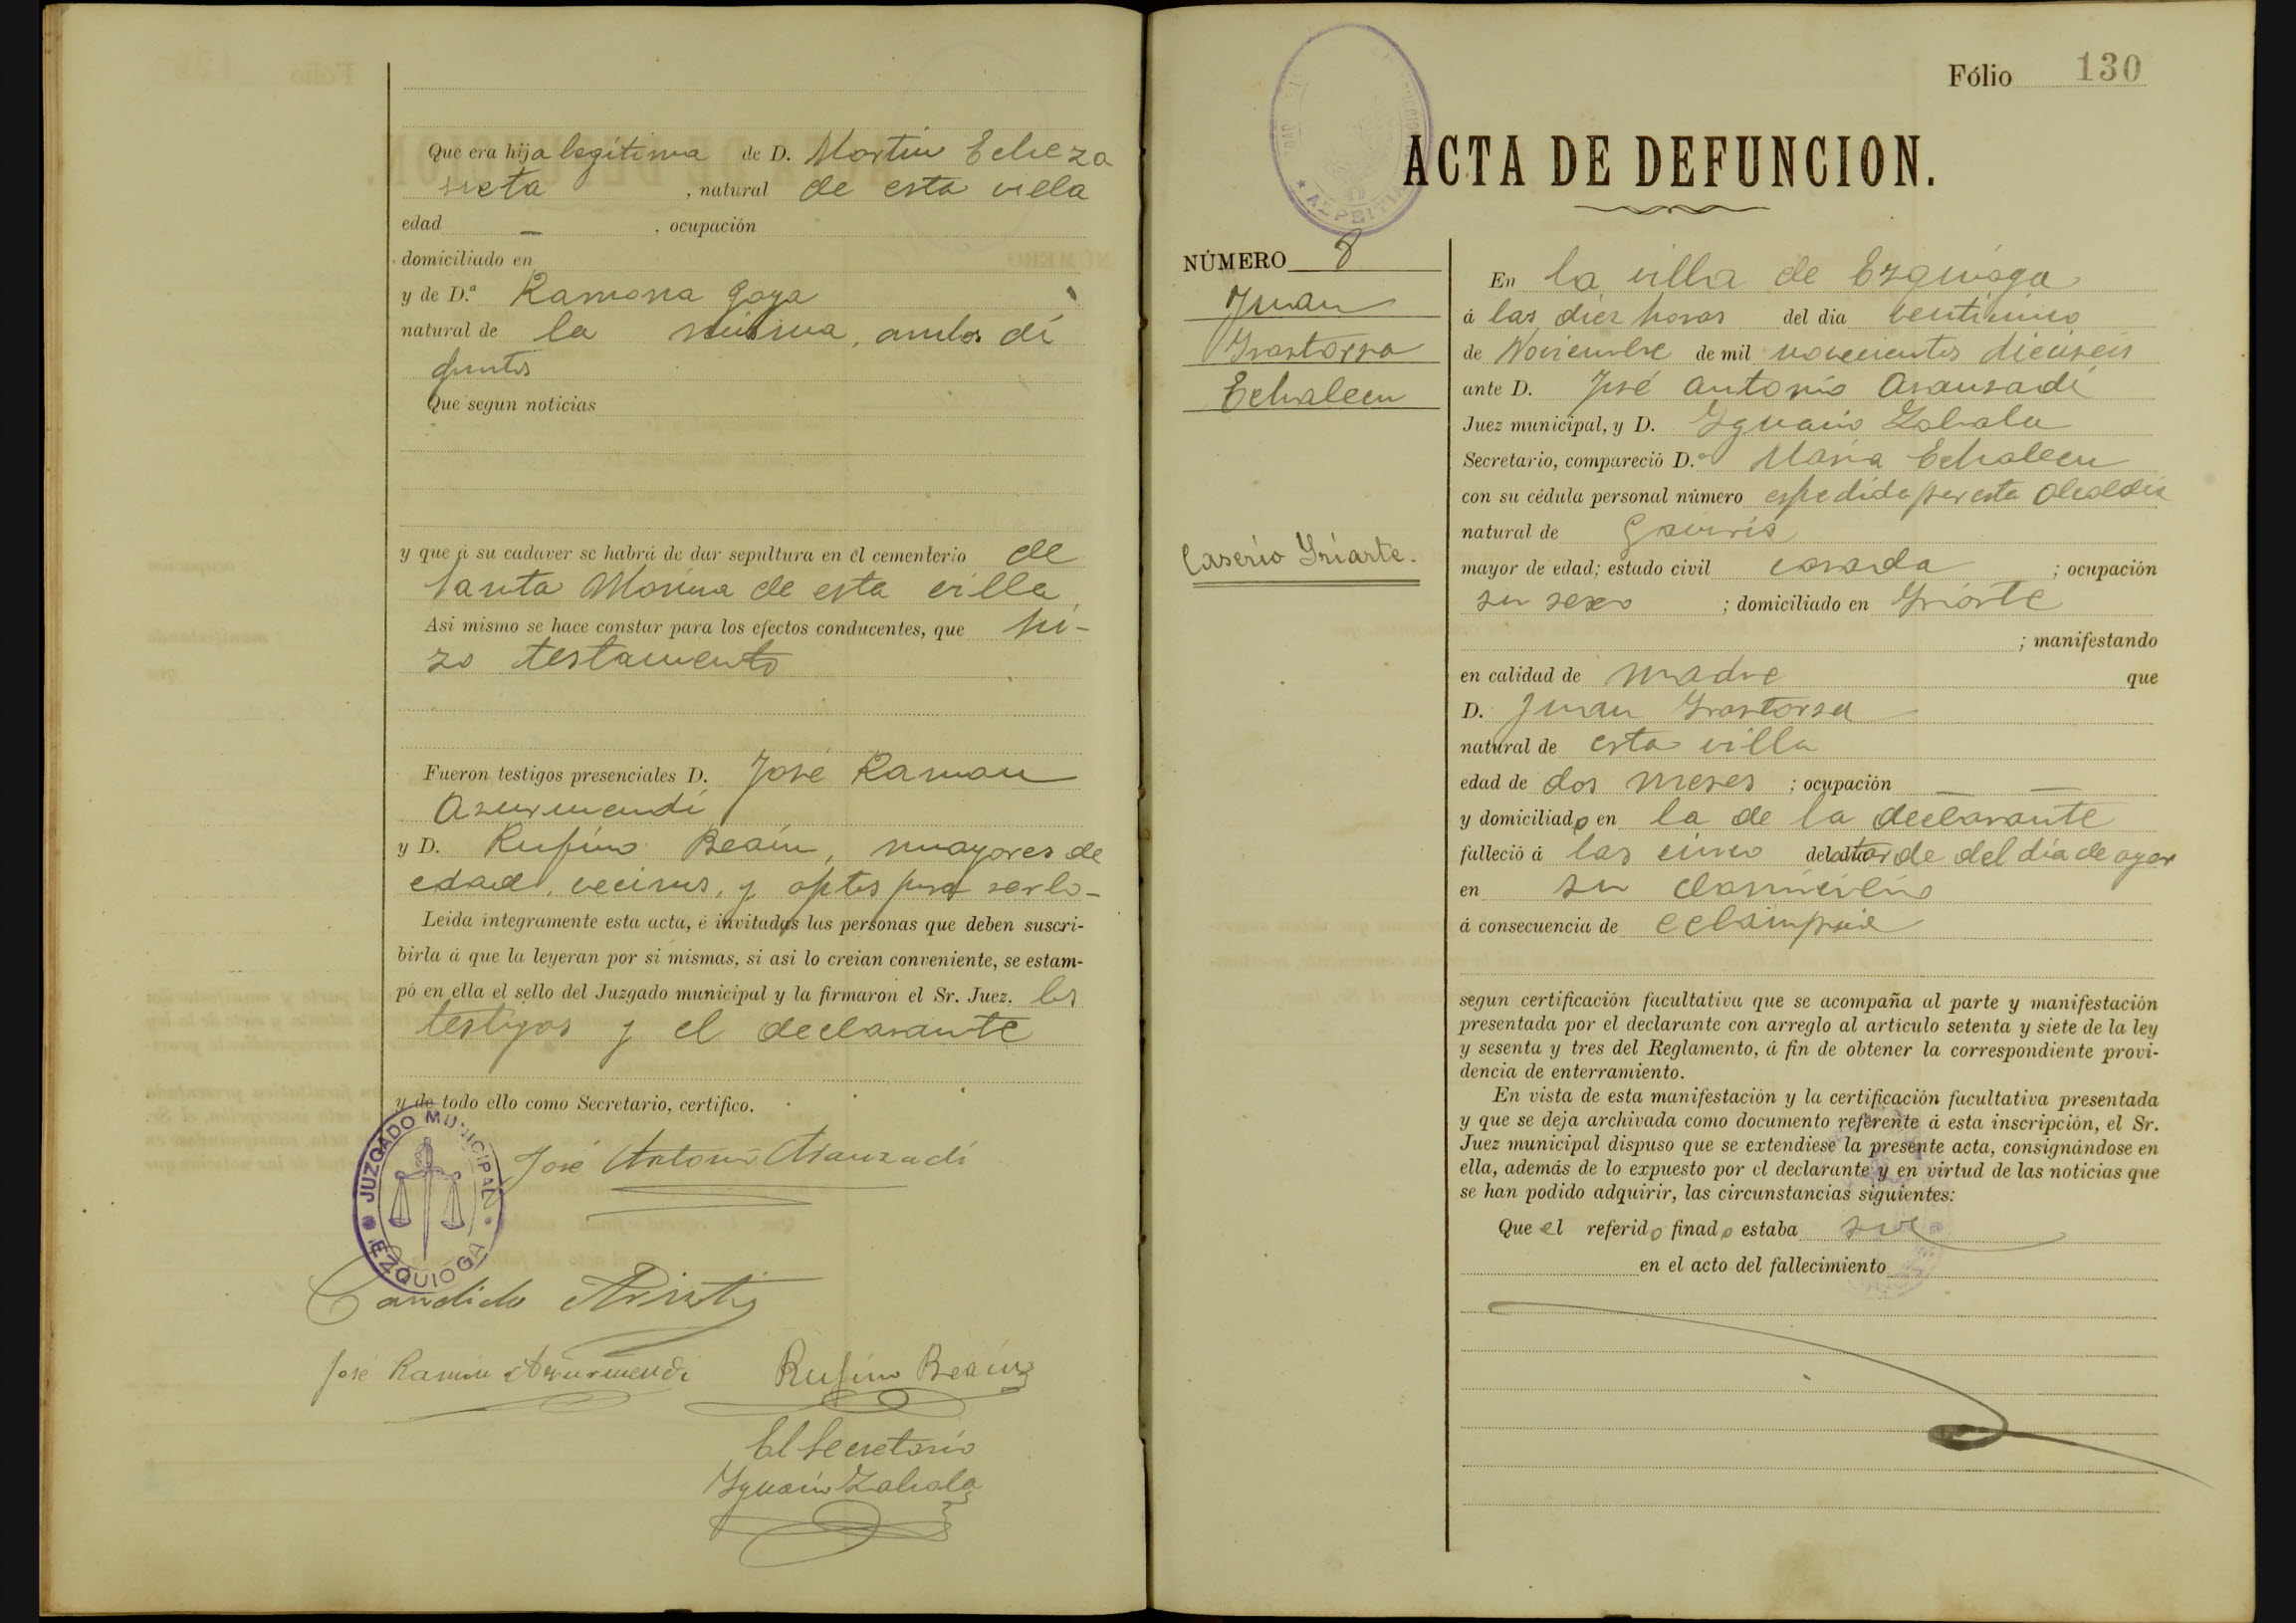 Que era hija legítima de D. Martin Echeza
rreta , natural de esta villa
edad — , ocupación
domiciliado en
y de D.ª Ramona Goya
natural de la misma, ambos di
funtos
Que segun noticias
y que á su cadaver se habrá de dar sepultura en el cementerio de
Santa Marina de esta villa
Asi mismo se hace constar para los efectos conducentes, que hi-
zo testamento
Fueron testigos presenciales D. José Ramon
Azurmendi
y D. Rufino Beáin, mayores de
edad, vecinos, y aptos para serlo-
Leida íntegramente esta acta, é invitadas las personas que deben suscri-
birla á que la leyeran por si mismas, si asi lo creian conveniente, se estam-
pó en ella el sello del Juzgado municipal y la firmaron el Sr. Juez. los
testigos y el declarante
y de todo ello como Secretario, certifico.
JUZGADO MUNICIPAL
EZQUIOGA
José Antonio Aranzadi
Candido Aristi
José Ramón Azurmendi Rufino Beáin
El Secretario
Ygnacio Zabala
Fólio 130
AZPEITIA
ACTA DE DEFUNCION.
NÚMERO 8
Juan
Yrastorza
Echalecu
Caserío Yriarte.
En la villa de Ezquioga
á las diez horas del dia ventiuno
de Noviembre de mil novecientos dieciseis
ante D. José Antonio Aranzadi
Juez municipal, y D. Ygnacio Zabala
Secretario, compareció D.ª Maria Echalecu
con su cédula personal número espedida por esta Alcaldia
natural de Gaviria
mayor de edad; estado civil casada ; ocupación
su sexo ; domiciliado en Yriarte
; manifestando
en calidad de madre que
D. Juan Yrastorza
natural de esta villa
edad de dos meses ; ocupación — —
y domiciliado en la de la declarante
falleció á las cinco de la tarde del día de ayer
en su domicilio
á consecuencia de eclampsia
segun certificación facultativa que se acompaña al parte y manifestación
presentada por el declarante con arreglo al articulo setenta y siete de la ley
y sesenta y tres del Reglamento, á fin de obtener la correspondiente provi-
dencia de enterramiento.
En vista de esta manifestación y la certificación facultativa presentada
y que se deja archivada como documento referente á esta inscripción, el Sr.
Juez municipal dispuso que se extendiese la presente acta, consignándose en
ella, además de lo expuesto por el declarante y en virtud de las noticias que
se han podido adquirir, las circunstancias siguientes:
Que el referido finado estaba
en el acto del fallecimiento